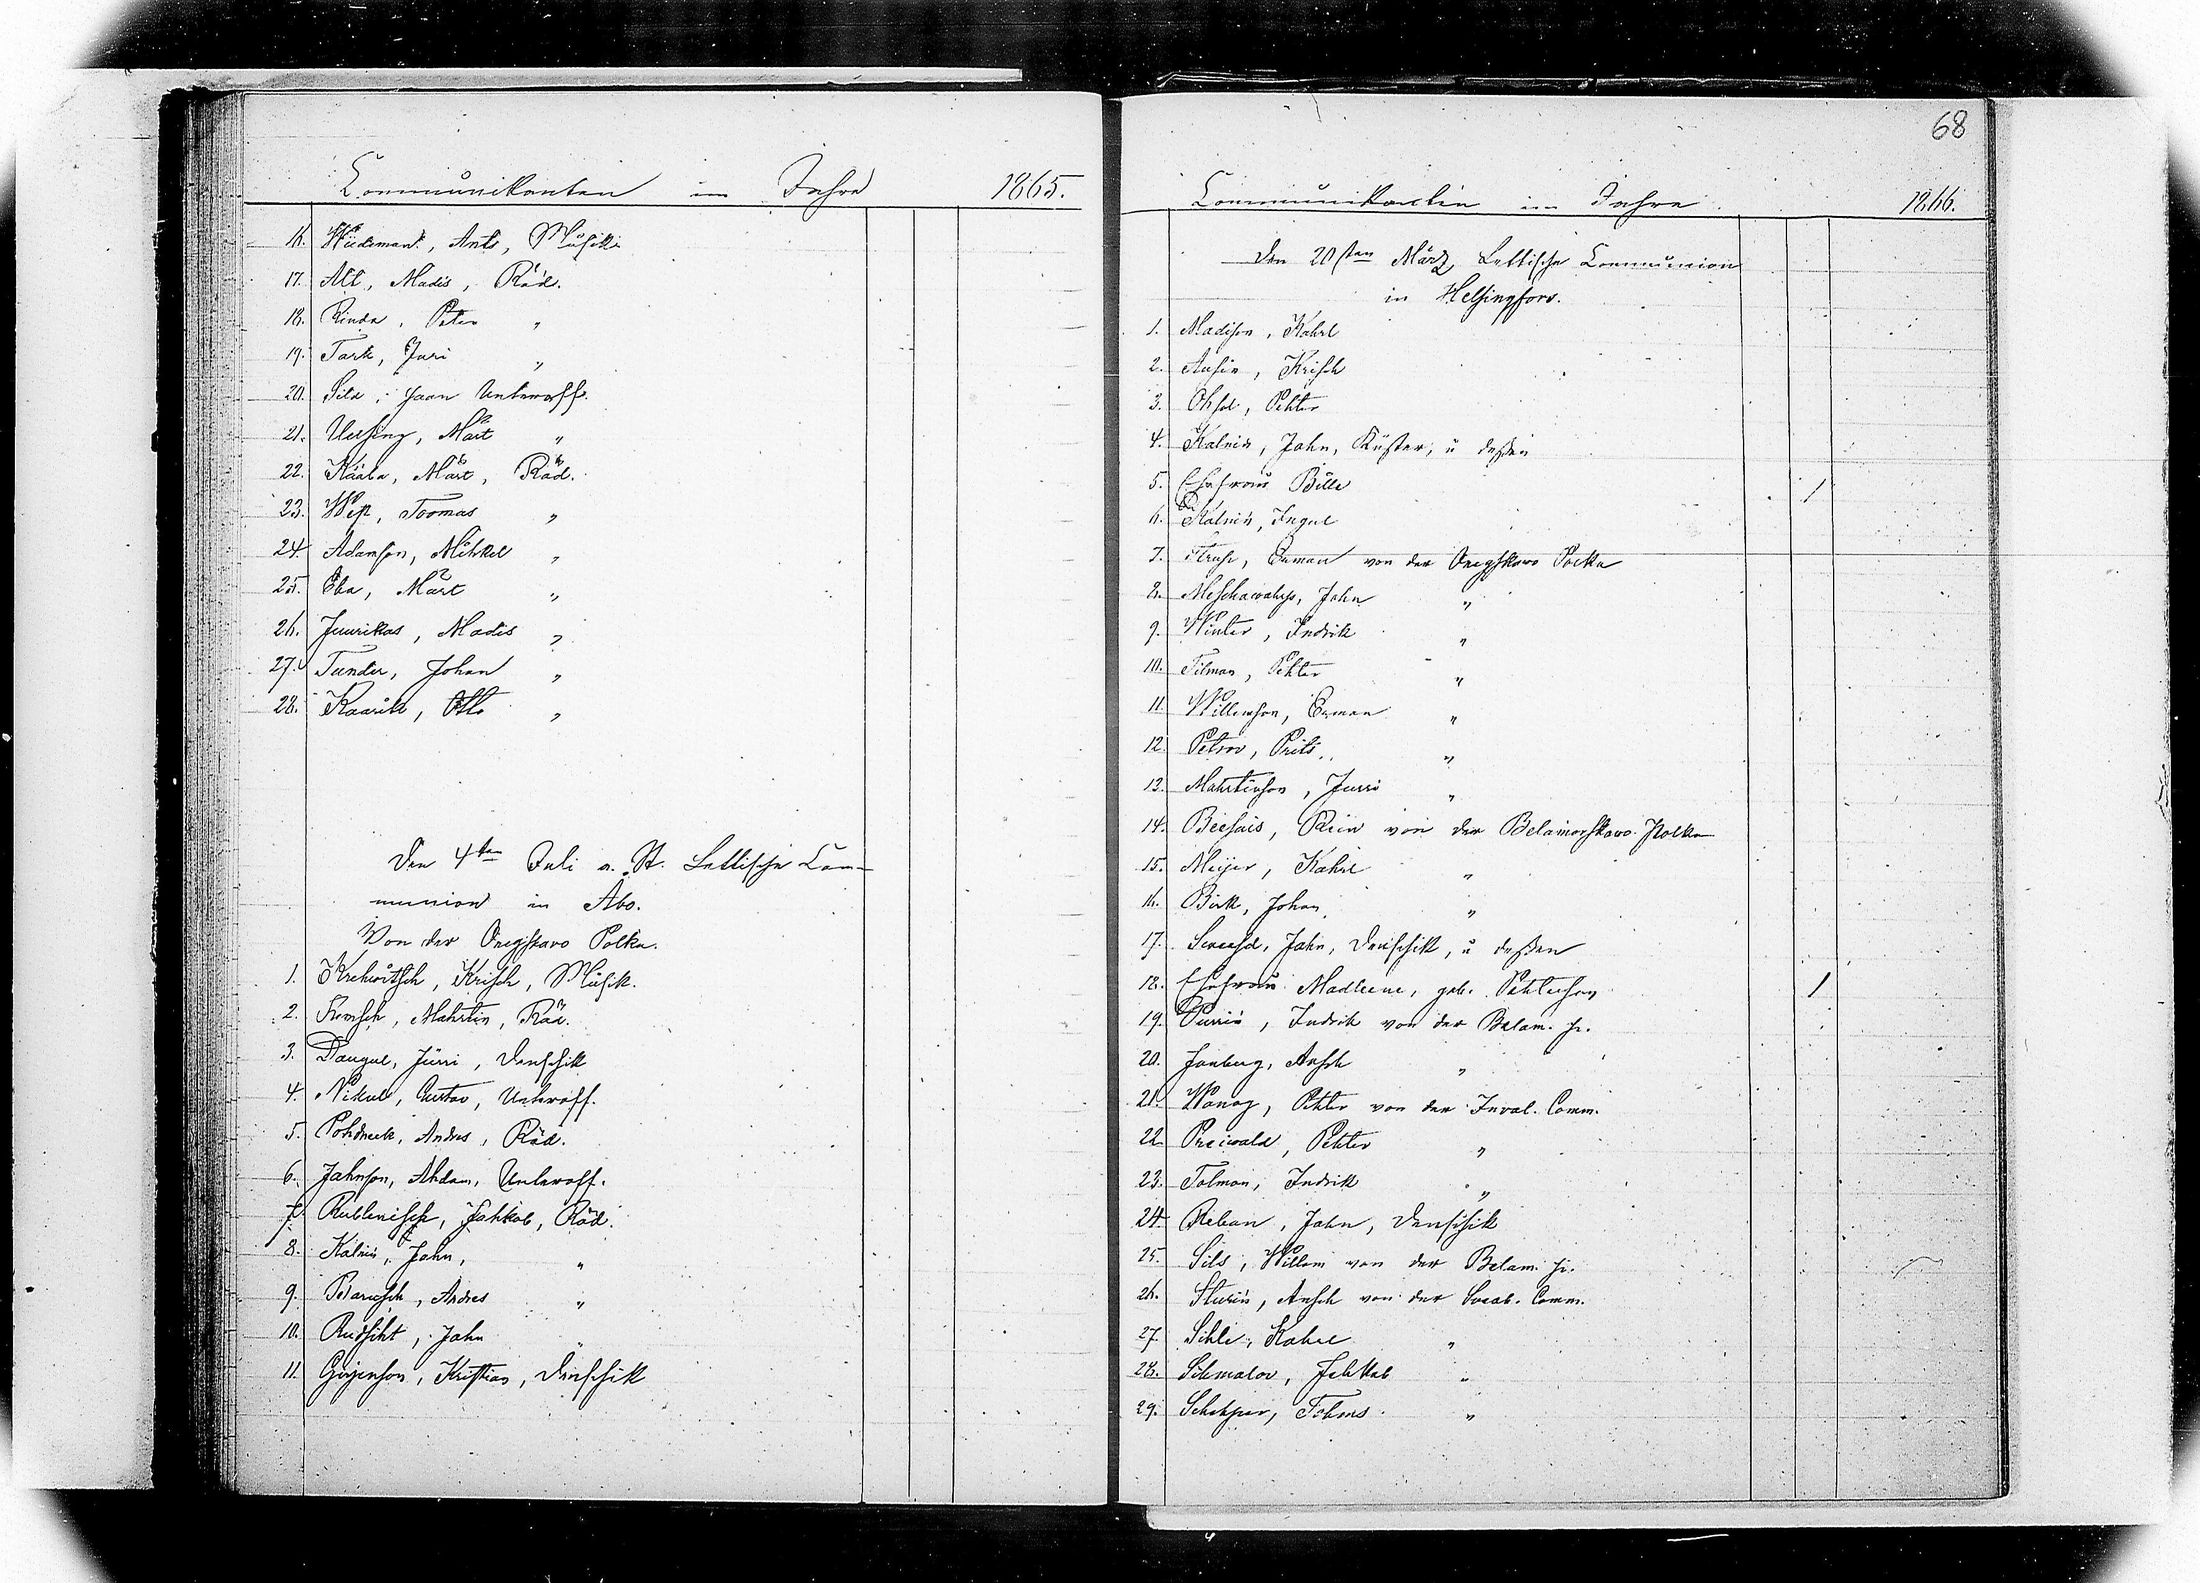 Communikanten im Jahre 1865.
16. Wiedemann, Ants, Musik.
17. Alt, Madis, Räd.
18. Rinda, Peter "
19. Tark, Juri "
20. Sild, Jaan Unteroff.
21. Uessing, Märt "
22. Kääla, Märt, Räd.
23. Toomas "
24. Adamson, Mihkel "
25. Eba, Märt "
26. Juurikas, Madis "
27. Tunder, Johan "
28. Kaarik, Otto "
Den 4ten Juli a. St. Lettische Com-
munion in Abo.
Von der Onegskavo Polka.
1. Krehwitsch, Krisch, Musik.
2. Mahrtin, Räd.
3. Daugul, Jürri, Denschik
4. Nikul, Gustav, Unteroff.
5. Pohdneek, Andres, Räd.
6. Jahnson, Ahdam, Unteroff.
7. Rublewisch, Jahkob, Räd.
8. Kalnin, Jahn, "
9. Barusch, Andres "
10. Rudsiht, Jahn "
11. Girgenson, Kristian, Denschik
68
Communikanten im Jahre 1866.
Den 20sten März Lettische Communion
in Helsingfors.
1. Madison, Kahrl
2. Ansin, Krisch
3. Ohsol, Pehter
4. Kalnin, Jahn, Küster, u deßen
5. Ehefrau Bille /
6. Kalnin, Ingel
7. Struhp, Erman von der Onegskavo Polka
8. Meschawahrs, Jahn "
9. Winter, Indrik "
10. Tilman, Pehter "
11. Willumson, Erman "
12. Petrov, Prits "
13. Mahrtinson, Jurri "
14. Beesais, Rein von der Belamorskavo Polka
15. Meijer, Kahrl "
16. Birk, Johan "
17. Sweesd, Jahn, Denschik, u deßen
18. Ehefrau Madleene, geb. Pehterson /
19. Purrin, Indrik von der Belam. P.
20. Jauberg, Ansch "
21. Wanag, Pehter von der Inval. Comm.
22. Preiwald, Pehter "
23. Tolman, Indrik "
24. Reban, Jahn, Denschik
25. Sils, Willem von der Belam. P.
26. Sturin, Ansch von der Sweab. Comm.
27. Sihle, Kahrl "
28. Silmalov, Jehkab "
29. Schepper, Tohms "